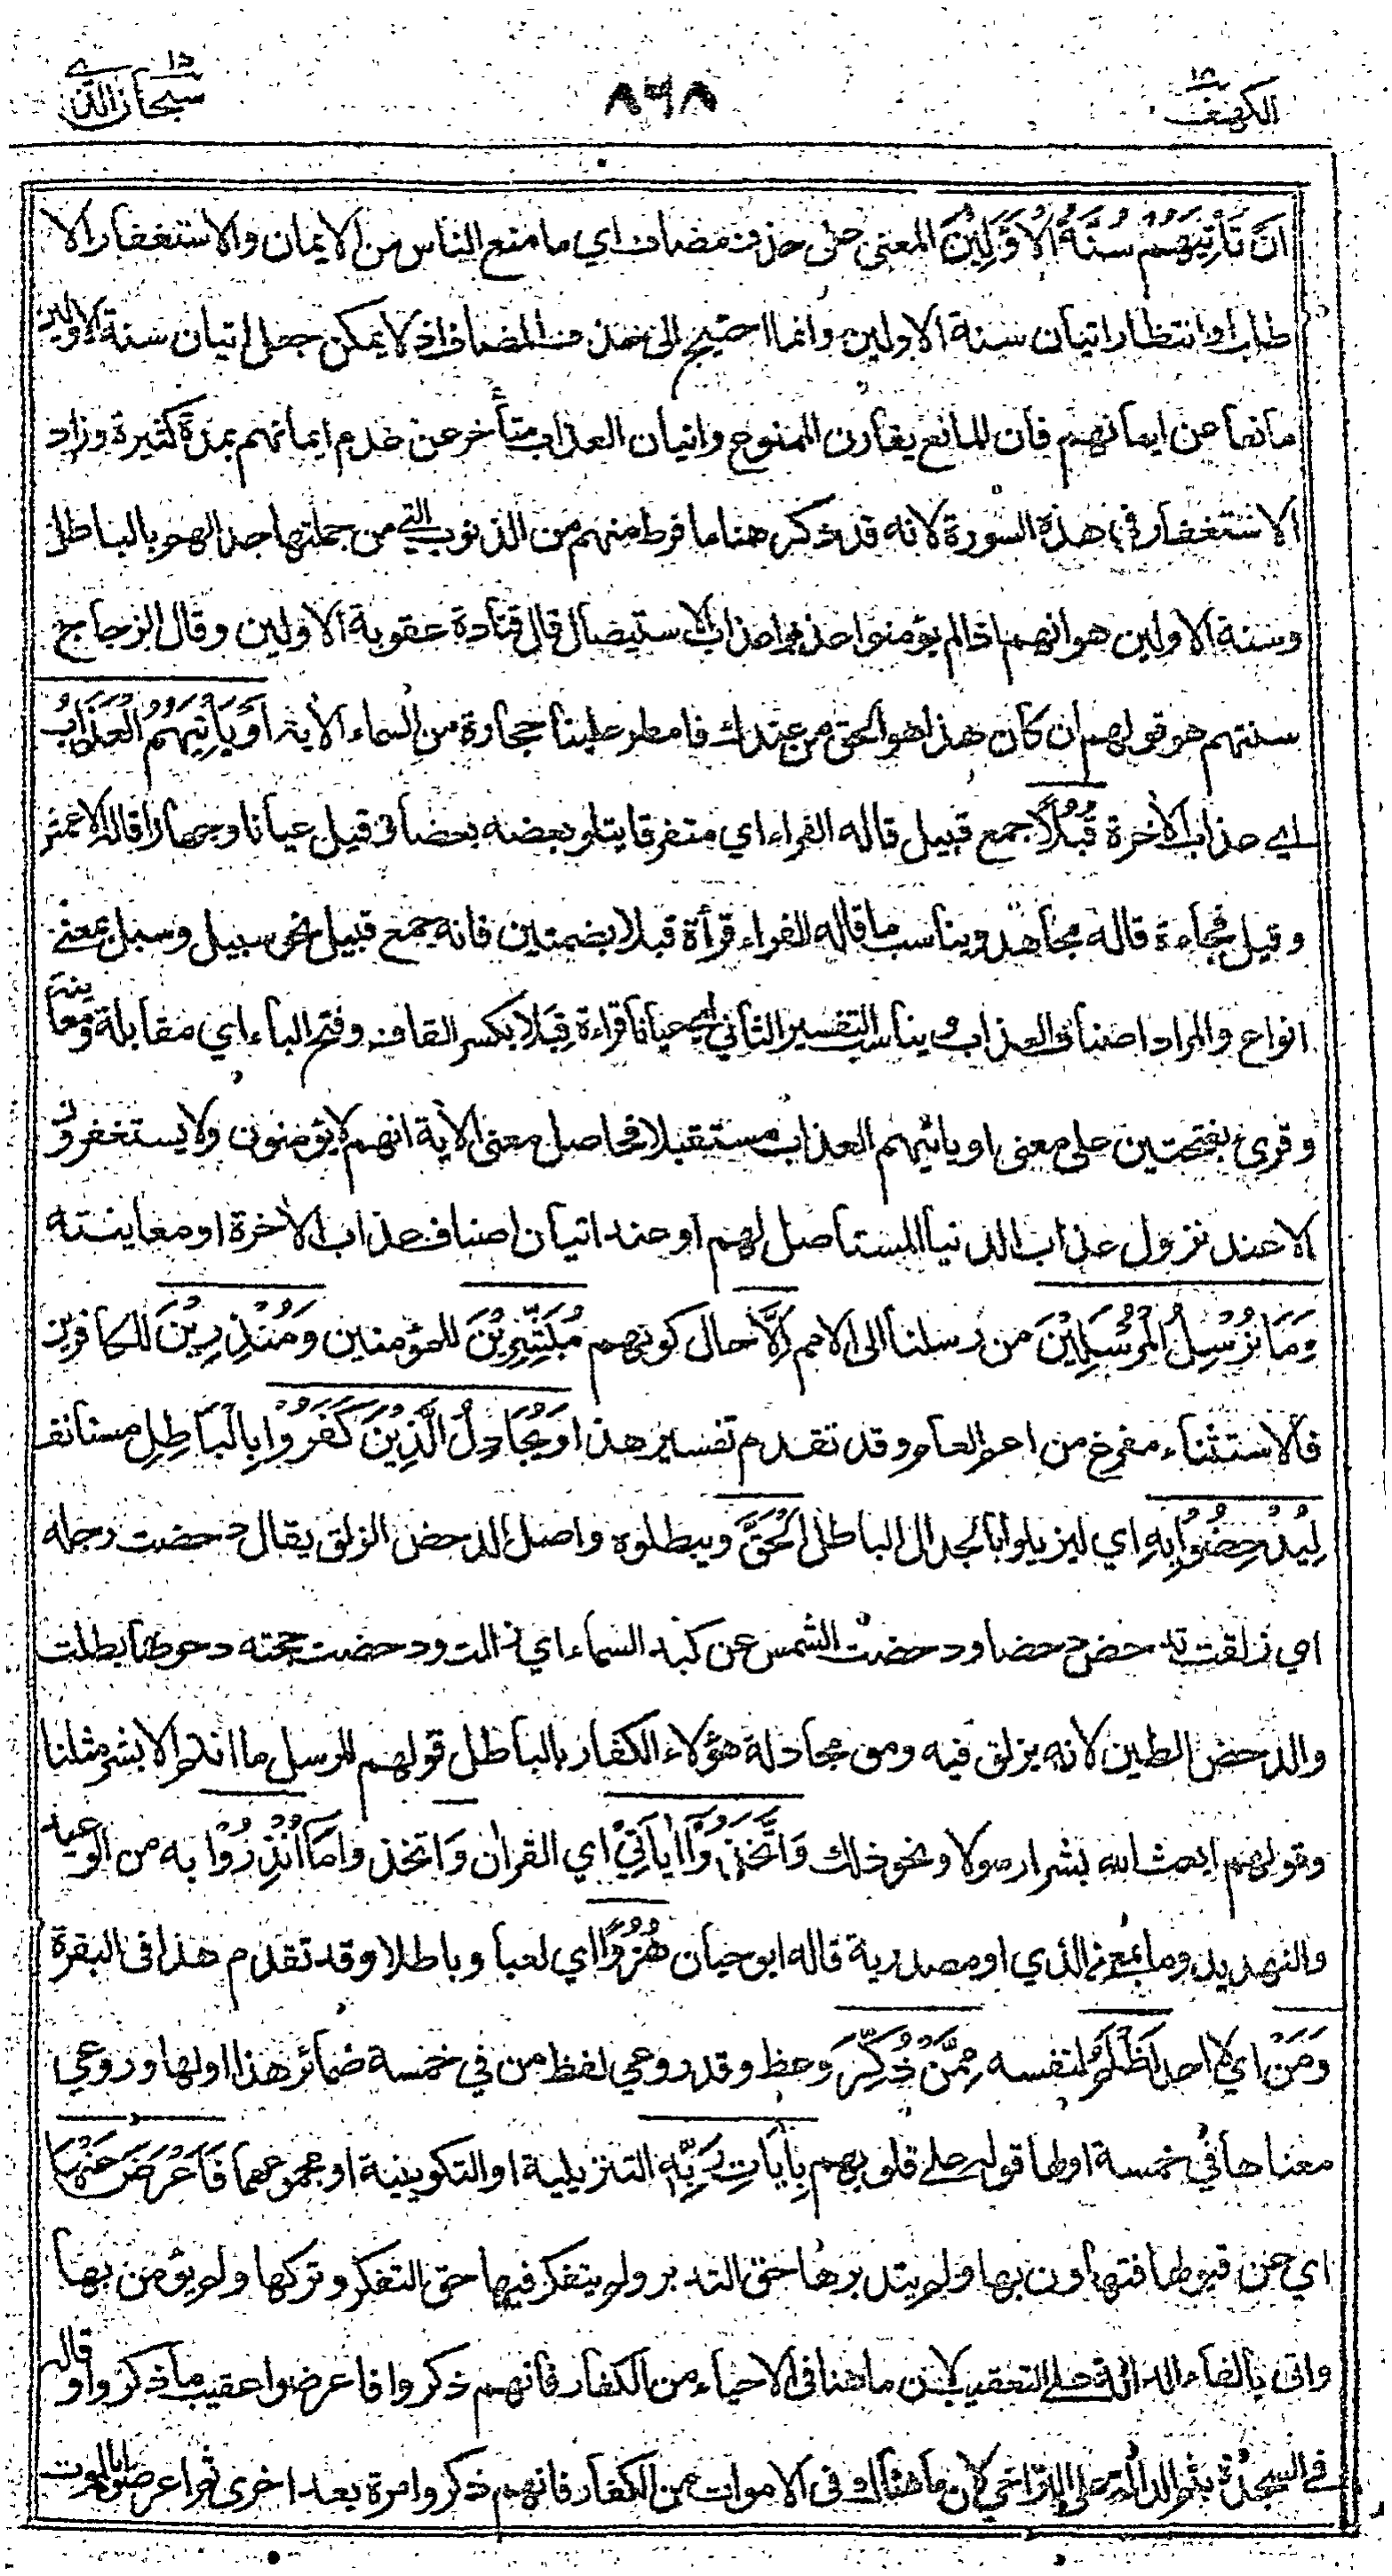 الكهف ١٨
٨٦٨
سبحان الذي ١٥
اَنْ تَاْتِيَهُمْ سُنَّةُ الْاَوَّلِيْنَ المعنى على حذف مضاف اي ما منع الناس من الايمان والاستغفار الا
طلب او انتظار اتيان سنة الاولين وانما احتيج الى حذف المضاف اذ لا يمكن جعل اتيان سنة الاولين
مانعا عن ايمانهم فان المانع يقارن الممنوع واتيان العذاب متأخر عن عدم ايمانهم بمدة كثيرة وزاد
الاستغفار في هذه السورة لانه قد ذكر هنا ما فرط منهم من الذنوب التي من جملتها جدالهم بالباطل
وسنة الاولين هو انهم اذا لم يؤمنوا عذبوا عذاب الاستيصال قال قتادة عقوبة الاولين وقال الزجاج
سنتهم هو قولهم ان كان هذا هو الحق من عندك فامطر علينا حجارة من السماء الآية اَوْ يَاْتِيَهُمُ الْعَذَابُ
اي عذاب الآخرة قُبُلًا جمع قبيل قاله الفراء اي متفرقا يتلو بعضه بعضا وقيل عيانا وجهارا قاله الاعمش
وقيل فجاءة قاله مجاهد ويناسب ما قاله الفراء قرأة قبلا بضمتين فانه جمع قبيل نحو سبيل وسبل بمعنى
انواع والمراد اصناف العذاب ويناسب التفسير الثاني اي عيانا قراءة قِبَلا بكسر القاف وفتح الباء اي مقابلة ومعاينة
وقرئ بفتحتين على معنى او ياتيهم العذاب مستقبلا فحاصل معنى الآية انهم لا يؤمنون ولا يستغفرون
الا عند نزول عذاب الدنيا المستاصل لهم او عند اتيان اصناف عذاب الآخرة او معاينته
وَمَا نُرْسِلُ الْمُرْسَلِيْنَ من رسلنا الى الامم اِلَّا حال كونهم مُبَشِّرِيْنَ للمؤمنين وَمُنْذِرِيْنَ للكافرين
فالاستثناء مفرغ من اعم العام وقد تقدم تفسير هذا وَيُجَادِلُ الَّذِيْنَ كَفَرُوْا بِالْبَاطِلِ مستانف
لِيُدْحِضُوْا بِهِ اي ليزيلوا بالجدال الباطل الْحَقَّ ويبطلوه واصل الدحض الزلق يقال دحضت رجله
اي زلقت تدحض دحضا ودحضت الشمس عن كبد السماء اي زالت ودحضت حجته دحوضا بطلت
والدحض الطين لانه يزلق فيه ومن مجادلة هؤلاء الكفار بالباطل قولهم للرسل ما انتم الا بشر مثلنا
وقولهم ابعث الله بشرا رسولا ونحو ذلك وَاتَّخَذُوْا اٰيَاتِيْ اي القرآن وَاتخذوا مَا اُنْذِرُوْا به من الوعيد
والتهديد وما بمعنى الذي او مصدرية قاله ابو حيان هُزُوًا اي لعبا وباطلا وقد تقدم هذا في البقرة
وَمَنْ اي لا احد اَظْلَمُ لنفسه مِمَّنْ ذُكِّرَ وعظ وقد روعي لفظ من في خمسة ضمائر هذا اولها وروعي
معناها في خمسة اولها قوله على قلوبهم بِاٰيَاتِ رَبِّهِ التنزيلية او التكوينية او مجموعهما فَاَعْرَضَ عَنْهَا
اي عن قبولها فتهاون بها ولم يتدبرها حق التدبر ولم يتفكر فيها حق التفكر وتركها ولم يؤمن بها
واتى بالفاء الدالة على التعقيب لان ما هنا في الاحياء من الكفار فانهم ذكروا فاعرضوا عقيب ما ذكروا وقاله
في السجدة بثم الدالة على التراخي لان ما هناك في الاموات من الكفار فانهم ذكروا مرة بعد اخرى ثم اعرضوا بالموت